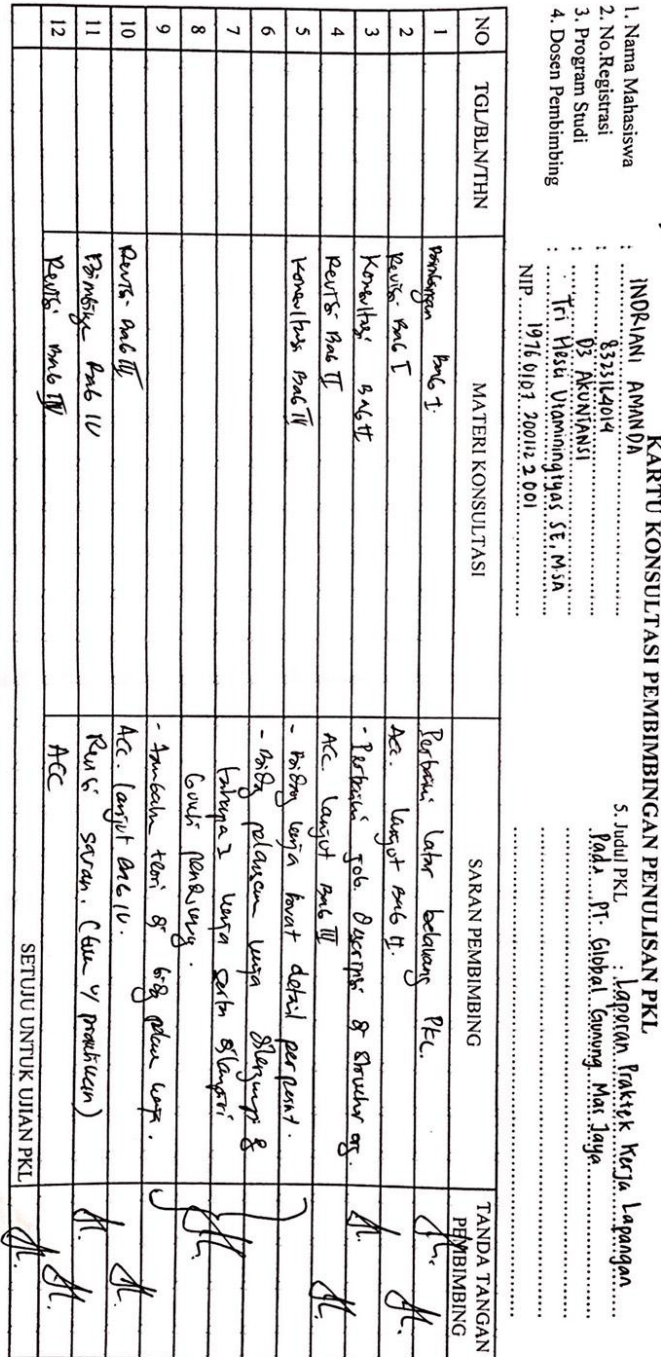 KARTU KONSULTASI PEMBIMBINGAN PENULISAN PKL
1. Nama Mahasiswa : INDRIANI AMANDA
2. No.Registrasi : 8323164014
3. Program Studi : D3 AKUNTANSI
4. Dosen Pembimbing : Tri Hesti Utaminingtyas SE, M.SA
NIP 19760107 200112 2 001
5. Judul PKL : Laporan Praktek Kerja Lapangan
Pada PT. Global Gunung Mas Jaya
NO TGL/BLN/THN MATERI KONSULTASI SARAN PEMBIMBING TANDA TANGAN PEMBIMBING
1 Bimbingan Bab I. Perbaiki latar belakang PKL.
2 Revisi Bab I Acc. lanjut Bab II.
3 Konsultasi Bab II - Perbaiki job. Descripsi & struktur org.
4 Revisi Bab II Acc. lanjut Bab III
5 Konsultasi Bab - Bidang kerja buat detail per point.
6 - Bidang kerja
7 kerja serta dilampiri
8
9 - teori
10 Revisi Bab III Acc. lanjut Bab IV.
11 Bimbingan Bab IV Revisi saran.
12 Revisi Bab IV ACC
SETUJU UNTUK UJIAN PKL